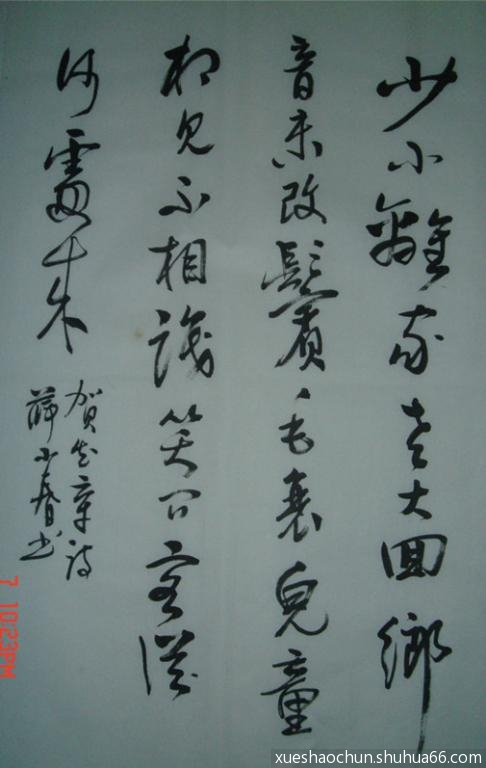 少小離家老大回鄉
音未改鬢毛衰兒童
相見不相識笑问客從
何處来
賀知章诗
薛少春书
7 10:23PM
xueshaochun.shuhua66.com